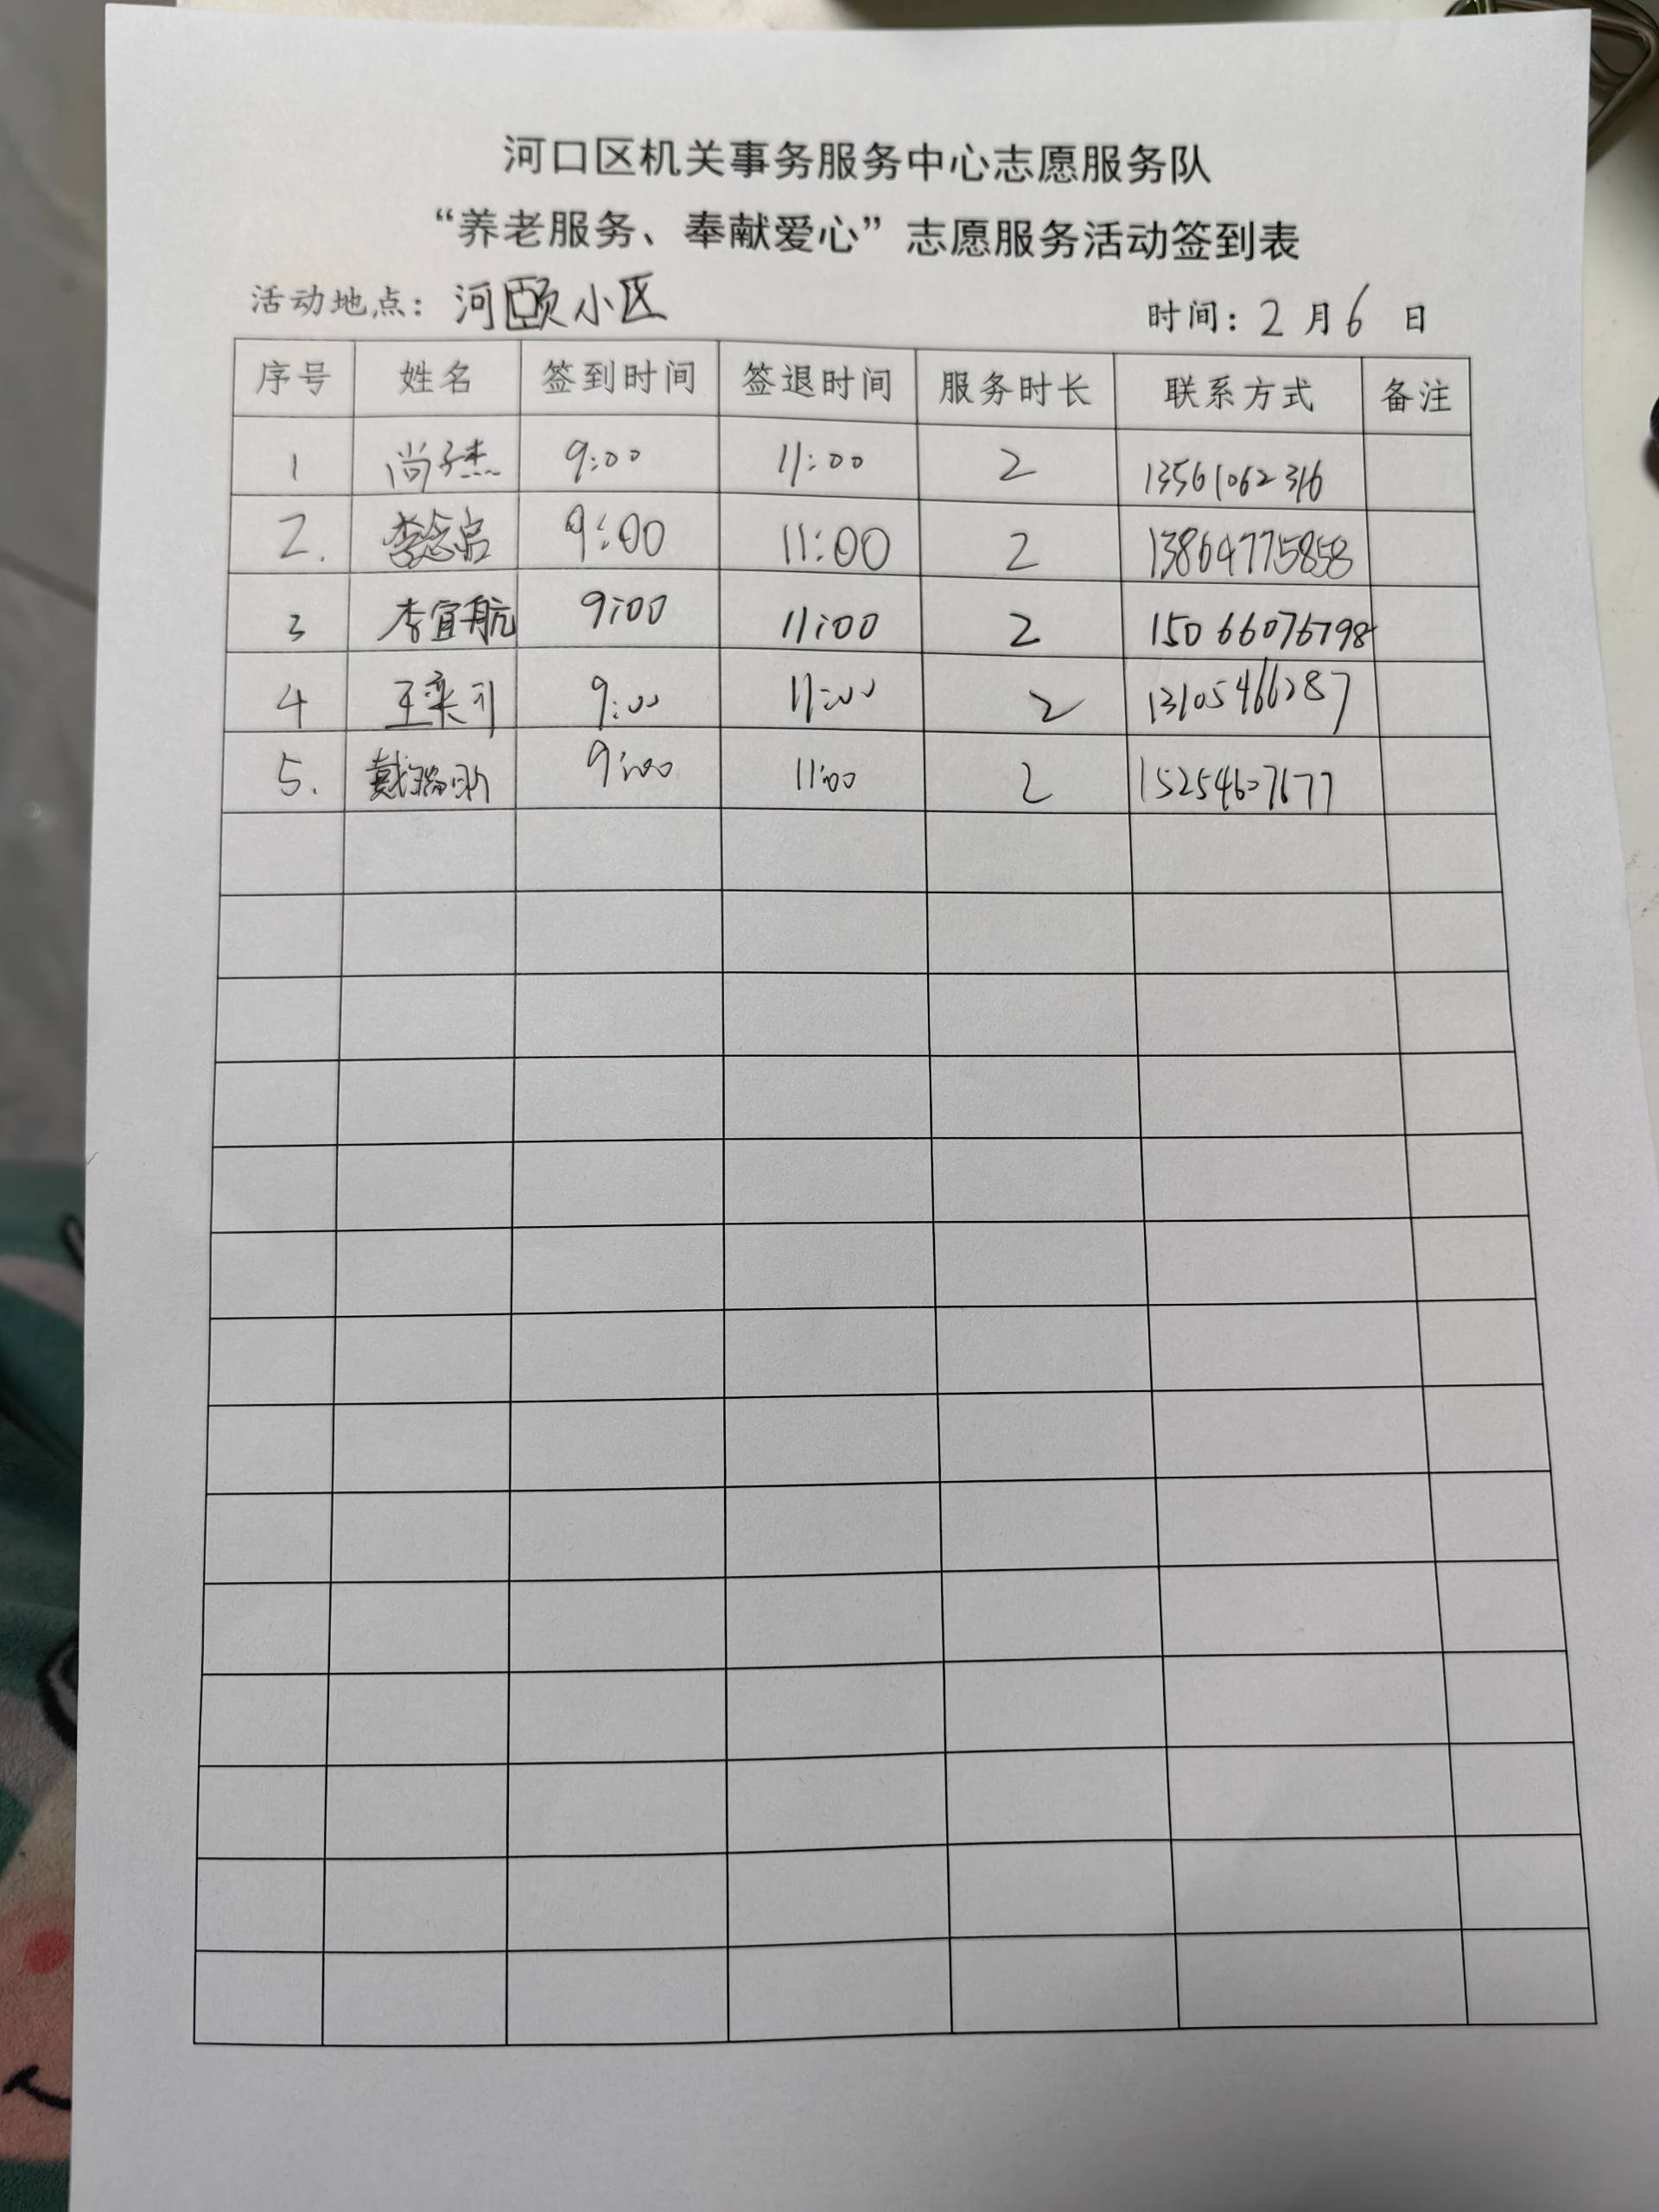 河口区机关事务服务中心志愿服务队
“养老服务、奉献爱心”志愿服务活动签到表
活动地点：河颐小区 时间：2月6日
序号 姓名 签到时间 签退时间 服务时长 联系方式 备注
1 尚子杰 9:00 11:00 2 13561062316
2. 李念启 9:00 11:00 2 13864775858
3 李宜航 9:00 11:00 2 15066076798
4 王 9:00 11:00 2 13105466287
5. 戴 9:00 11:00 2 15254607677